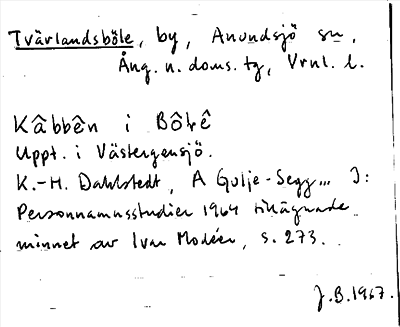 Tvärlandsböle, by, Anundsjö sn,
Ång. n. doms. tg, Vrnl. l.
Kâbbên i Bôlê
Uppt. i Västergensjö.
K.-H. Dahlstedt, A Gulje-Segg... I:
Personnamnsstudier 1964 tillägnade
minnet av Ivar Modéer, s. 273.
J.B. 1967.